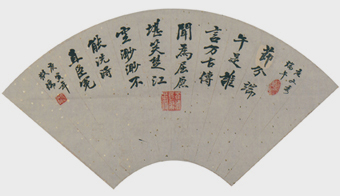 節分端
午是誰
言万古傳
聞為屈原
堪笑楚江
空渺渺不
能洗得
直臣冤